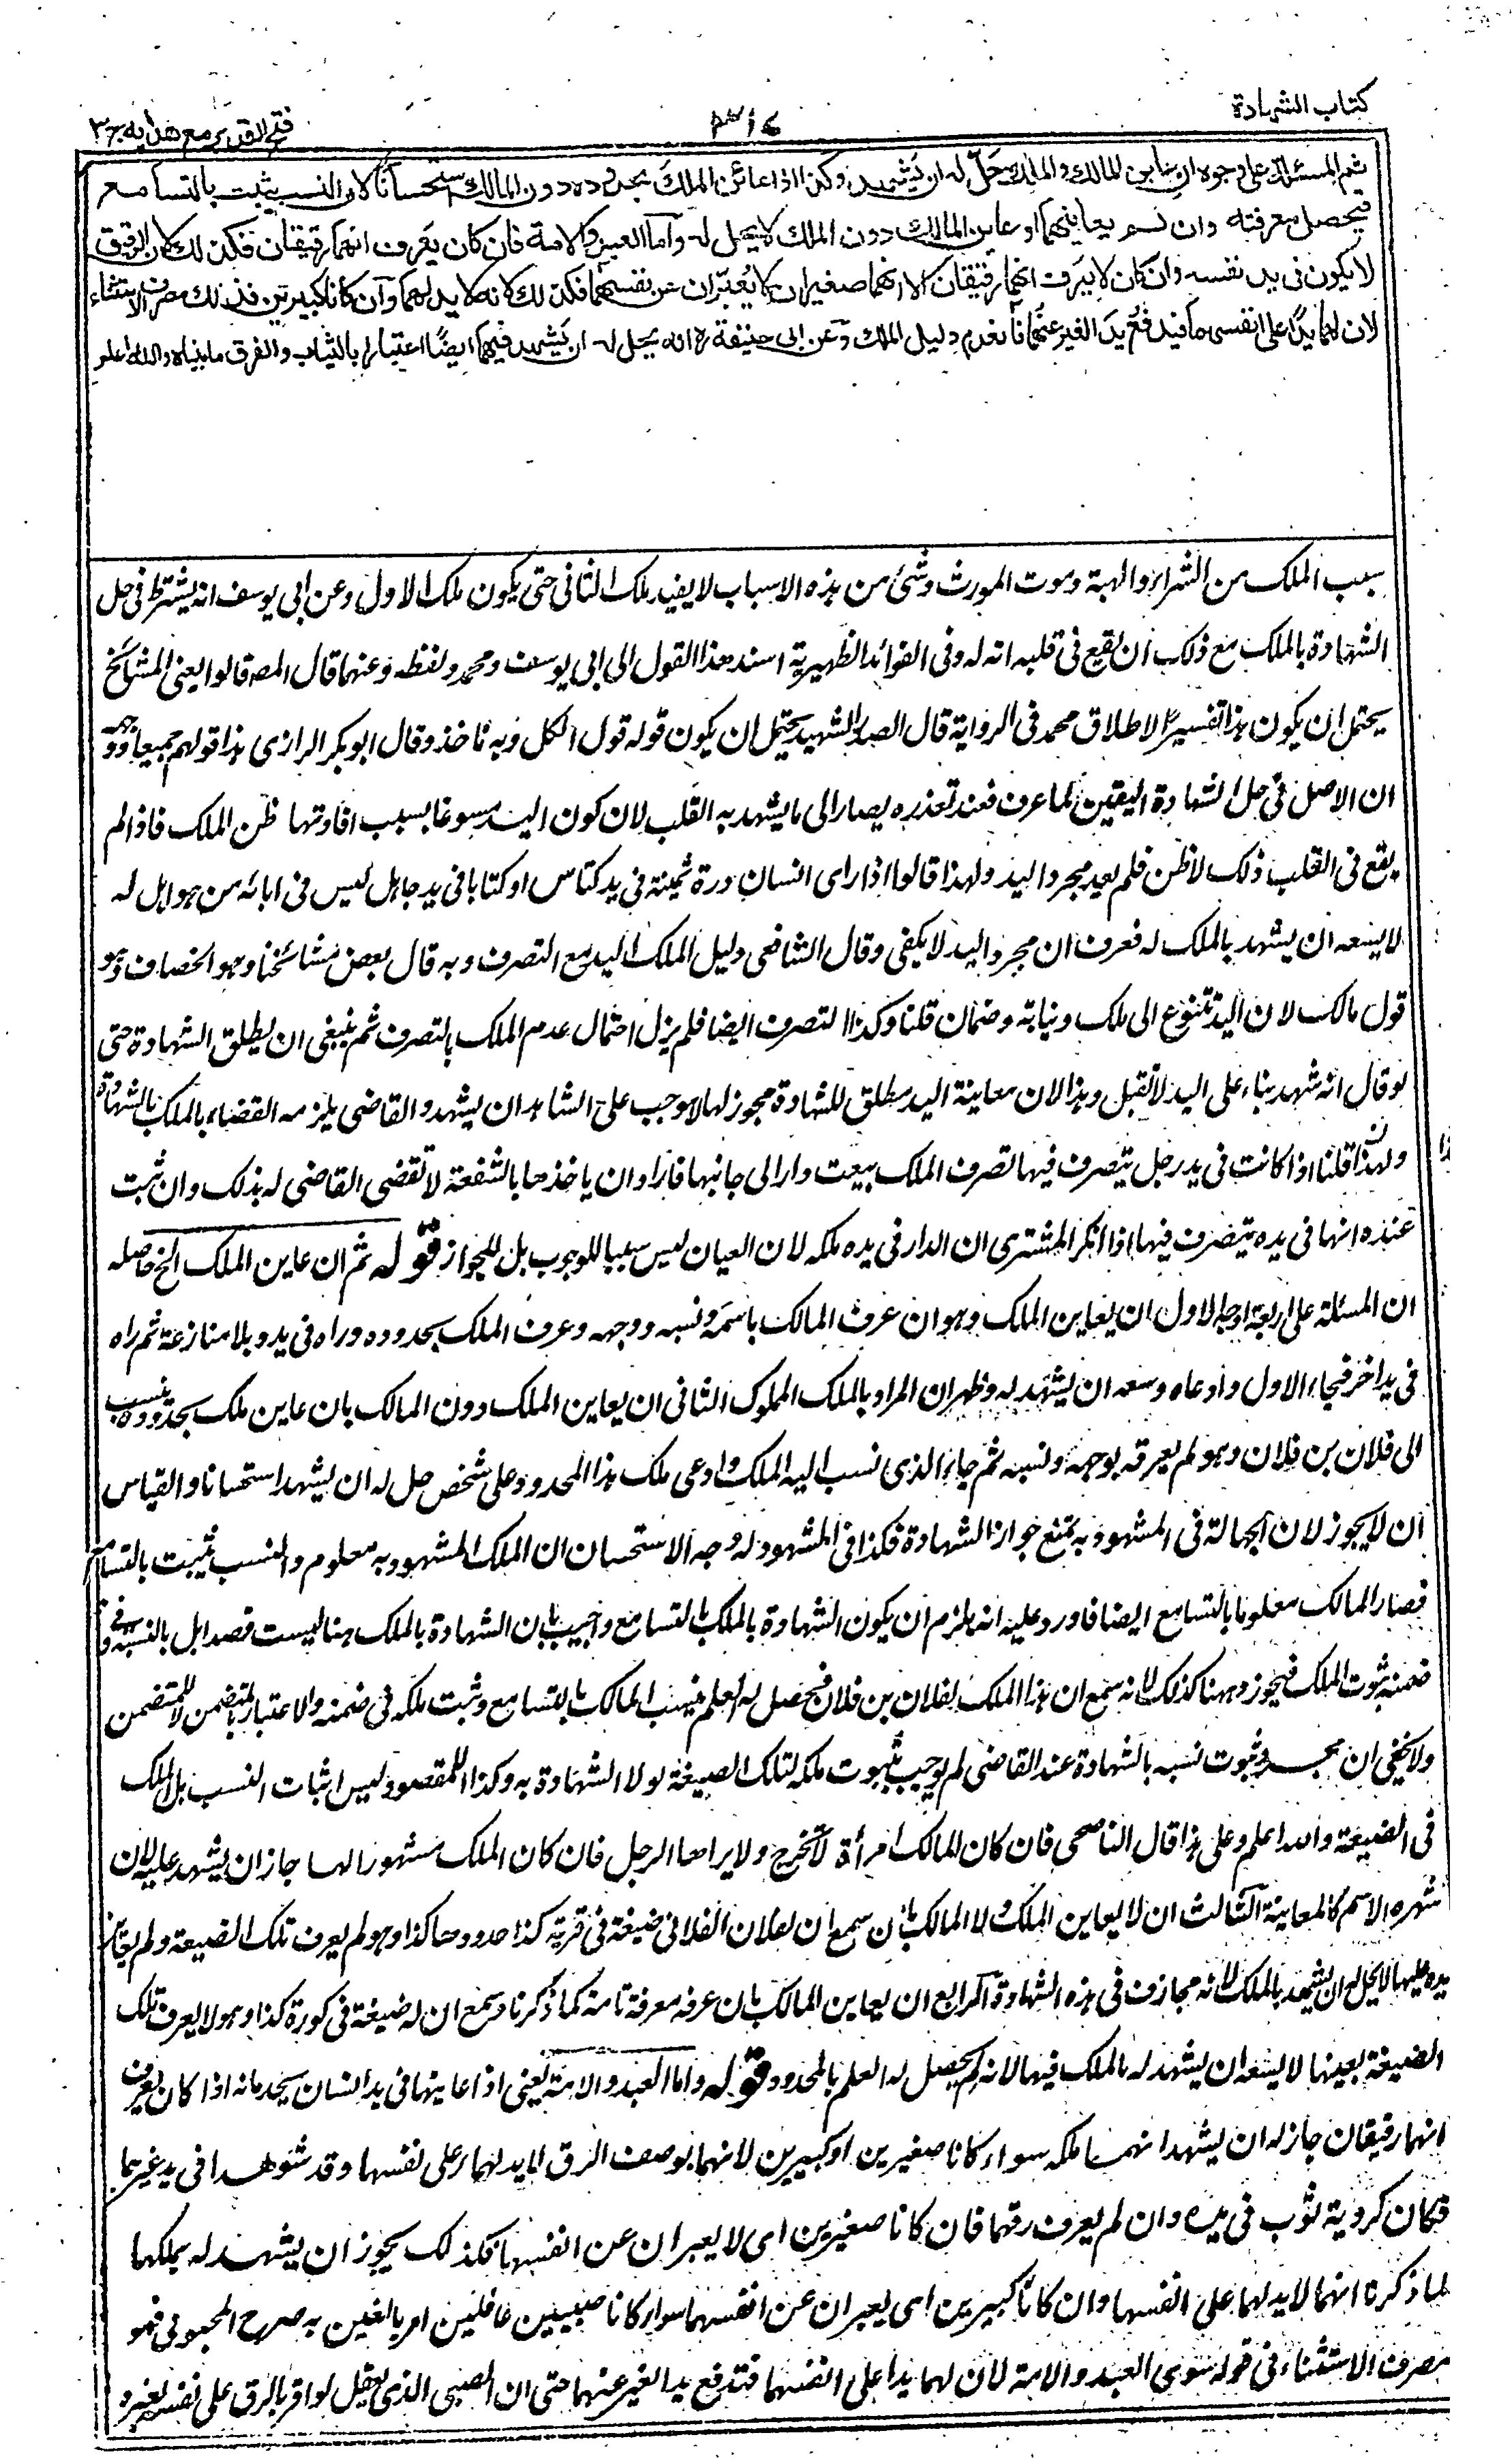 كتاب الشهادة
٣١٤
فتح القدير مع هدايه ج ٣
ثم المسئلة على وجوه ان عاين المالك والملك حل له ان يشهد وكذا اذا عاين الملك بحدوده دون المالك استحسانا لان النسب يثبت بالتسامع
فيحصل معرفته وان لم يعاينهما او عاين المالك دون الملك لا يحل له واما العبد والامة فان كان يعرف انهما رقيقان فكذلك لان الرقيق
لا يكون في يد نفسه وان كان لا يعرف انهما رقيقان الا انهما صغيران لا يعبران عن نفسهما فكذلك لانه لا يد لهما وان كانا كبيرين فذلك مصرف الاستثناء
لان لهما يدا على انفسهما فيدفع يد الغير عنهما فانعدم دليل الملك وعن ابي حنيفة ره انه يحل له ان يشهد فيهما ايضا اعتبارا بالثياب والفرق ما بيناه والله اعلم
سبب الملك من الشراء والهبة وموت المورث وشئ من هذه الاسباب لا يفيد ملك الثاني حتى يكون ملك الاول وعن ابي يوسف انه يشترط في حل
الشهادة بالملك مع ذلك ان يقع في قلبه انه له وفي الفوائد الظهيرية اسند هذا القول الى ابي يوسف ومحمد ولفظه وعنهما قال المصـ قالوا يعني المشائخ
يحتمل ان يكون هذا تفسير الاطلاق محمد في الرواية قال الصدر الشهيد يحتمل ان يكون قوله قول الكل وبه ناخذ وقال ابو بكر الرازي هذا قولهم جميعا ووجهه
ان الاصل في حل الشهادة اليقين لما عرف فعند تعذره يصار الى ما يشهد به القلب لان كون اليد مسوغا بسبب افادتها ظن الملك فاذا لم
يقع في القلب ذلك لا ظن فلم يفد مجرد اليد ولهذا قالوا اذا راى انسان درة ثمينة في يد كناس او كتابا في يد جاهل ليس في ابائه من هو اهل له
لا يسعه ان يشهد بالملك له فعرف ان مجرد اليد لا يكفي وقال الشافعي دليل الملك اليد مع التصرف وبه قال بعض مشائخنا وهو الخصاف وهو
قول مالك لان اليد تتنوع الى ملك ونيابة وضمان قلنا وكذا التصرف ايضا فلم يزل احتمال عدم الملك بالتصرف ثم ينبغي ان يطلق الشهادة حتى
لو قال انه شهد بناء على اليد لا تقبل وهذا لان معاينة اليد مطلق للشهادة مجوز لها لا موجب على الشاهد ان يشهد والقاضي يلزمه القضاء بالملك بالشهادة
ولهذا قلنا اذا كانت في يد رجل يتصرف فيها تصرف الملك بيعت دار الى جانبها فاراد ان ياخذها بالشفعة لا تقضى القاضي له بذلك وان ثبت
عنده انها في يده يتصرف فيها اذا انكر المشتري ان الدار في يده ملكه لان العيان ليس سببا للوجوب بل للجواز قوله ثم ان عاين الملك الخ حاصله
ان المسئلة على اربعة اوجه الاول ان يعاين الملك وهو ان عرف المالك باسمه ونسبه ووجهه وعرف الملك بحدوده وراه في يده بلا منازعة ثم راه
في يد اخر فجاء الاول وادعاه وسعه ان يشهد له وظهر ان المراد بالملك المملوك الثاني ان يعاين الملك دون المالك بان عاين ملك بحدوده ينسب
الى فلان بن فلان وهو لم يعرفه بوجهه ونسبه ثم جاء الذي نسب اليه الملك وادعى ملك هذا المحدود على شخص حل له ان يشهد استحسانا والقياس
ان لا يجوز لان الجهالة في المشهود به تمنع جواز الشهادة فكذا في المشهود له وجه الاستحسان ان الملك المشهود به معلوم والنسب يثبت بالتسامع
فصار المالك معلوما بالتسامع ايضا فاورد عليه انه يلزم ان يكون الشهادة بالملك بالتسامع واجيب بان الشهادة بالملك هنا ليست قصدا بل بالنسبة وفي
ضمنه ثبوت الملك فيجوز وههنا كذلك لانه سمع ان هذا الملك لفلان بن فلان فحصل له العلم بنسب المالك بالتسامع وثبت ملكه في ضمنه والاعتبار للمتضمن لا للمتضمن
ولا يخفى ان مجرد ثبوت نسبه بالشهادة عند القاضي لم يوجب ثبوت ملكه لتلك الضيعة لولا الشهادة به وكذا المقصود ليس اثبات النسب بل الملك
في الضيعة والله اعلم وعلى هذا قال الناصحي فان كان المالك امرأة لا تخرج ولا يراها الرجل فان كان الملك مشهورا لها جاز ان يشهد عليه لان
شهرة الاسم كالمعاينة الثالث ان لا يعاين الملك ولا المالك بان سمع ان لفلان الفلاني ضيعة في قرية كذا حدودها كذا وهو لم يعرف تلك الضيعة ولم يعاين
يده عليها لا يحل له ان يشهد بالملك لانه مجازف في هذه الشهادة الرابع ان يعاين المالك بان عرفه معرفة تامة كما ذكرنا وسمع ان له ضيعة في كورة كذا وهو لا يعرف تلك
الضيعة بعينها لا يسعه ان يشهد له بالملك فيها لانه لم يحصل له العلم بالمحدود قوله واما العبد والامة يعني اذا عاينها في يد انسان يخدمانه اذا كان يعرف
انهما رقيقان جاز له ان يشهد انهما ملكه سواء كانا صغيرين او كبيرين لانهما بوصف الرق لا يد لهما على نفسهما وقد شوهدا في يد غيرهما
فكان كروية ثوب في يده وان لم يعرف رقهما فان كانا صغيرين اى لا يعبران عن انفسهما فكذلك يجوز ان يشهد له بملكهما
لما ذكرنا انهما لا يد لهما على انفسهما وان كانا كبيرين اى يعبران عن انفسهما سواء كانا صبيين عاقلين او بالغين به صرح المحبوبي فهو
مصرف الاستثناء في قوله سوى العبد والامة لان لهما يدا على انفسهما فتدفع يد الغير عنهما حتى ان الصبي الذي يعقل لو اقر بالرق على نفسه لغيره